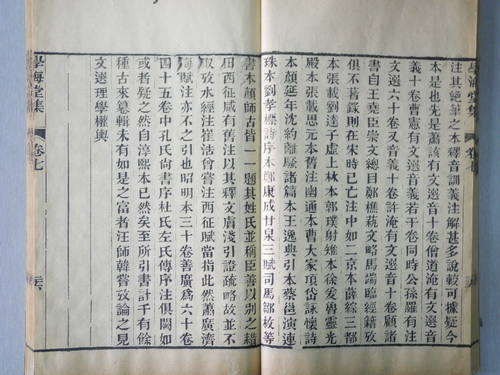 學海堂集
注其絶筆之本釋音訓義注解甚多說較可據疑今
本是也先是蕭該有文選音十卷僧道淹有文選音
十卷曹憲有文選音義若干卷同時公孫羅有注
文選六十卷又音義十卷許淹有文選音十卷顧諸
書自王堯臣崇文總目鄭樵蓺文略馬端臨經籍攷
俱不著錄則在宋時已亡注中如二京本薛綜三都
本張載劉逵子虛上林本郭璞射雉本徐爰魯靈光
殿本張載思元本舊注幽通本曹大家項岱詠懷詩
本顏延年沈約離騷諸篇本王逸典引本蔡邕演連
珠本劉孝標詩序本鄭康成甘泉三賦司馬鄒枚等
書本顏師古皆一一題其姓氏並稱臣善以别之藉
田西征咸有舊注以其釋文膚淺引證疏略故並不
取攷水經注崔浩曾嘗注西征賦當指此然蕭廣濟
海賦注亦不之引也昭明本三十卷善廣為六十卷
四十五卷中孔氏尚書序杜氏左氏傳序注俱闕如
或者疑之然自淳熙本已然矣至所引書計千有餘
種古來纂輯未有如是之富者汪師韓嘗攷論之見
文選理學權輿
學海堂集 卷七